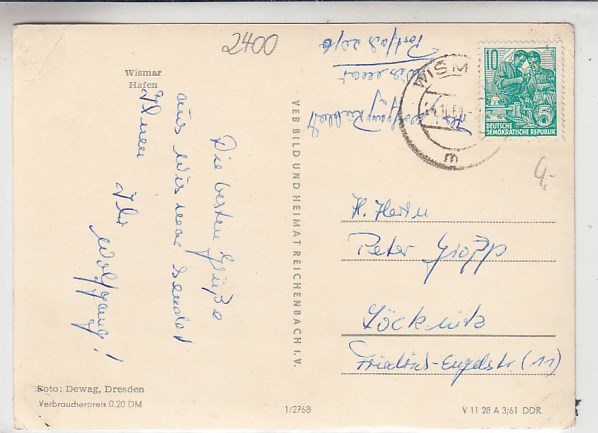 2400
Wismar
Hafen
Die besten Grüße
aus Wismar sendet
Ihnen Ihr
Wolfgang!
Foto: Dewag, Dresden
Verbraucherpreis 0.20 DM
VEB BILD UND HEIMAT REICHENBACH I.V.
1/2768
Wismar
Postfach
WISM
m
10
DEUTSCHE
DEMOKRATISCHE REPUBLIK
4,-
H. Herrn
Peter Gropp
Löcknitz
Friedrich-Engelsstr (11)
V 11 28 A 3/61 DDR